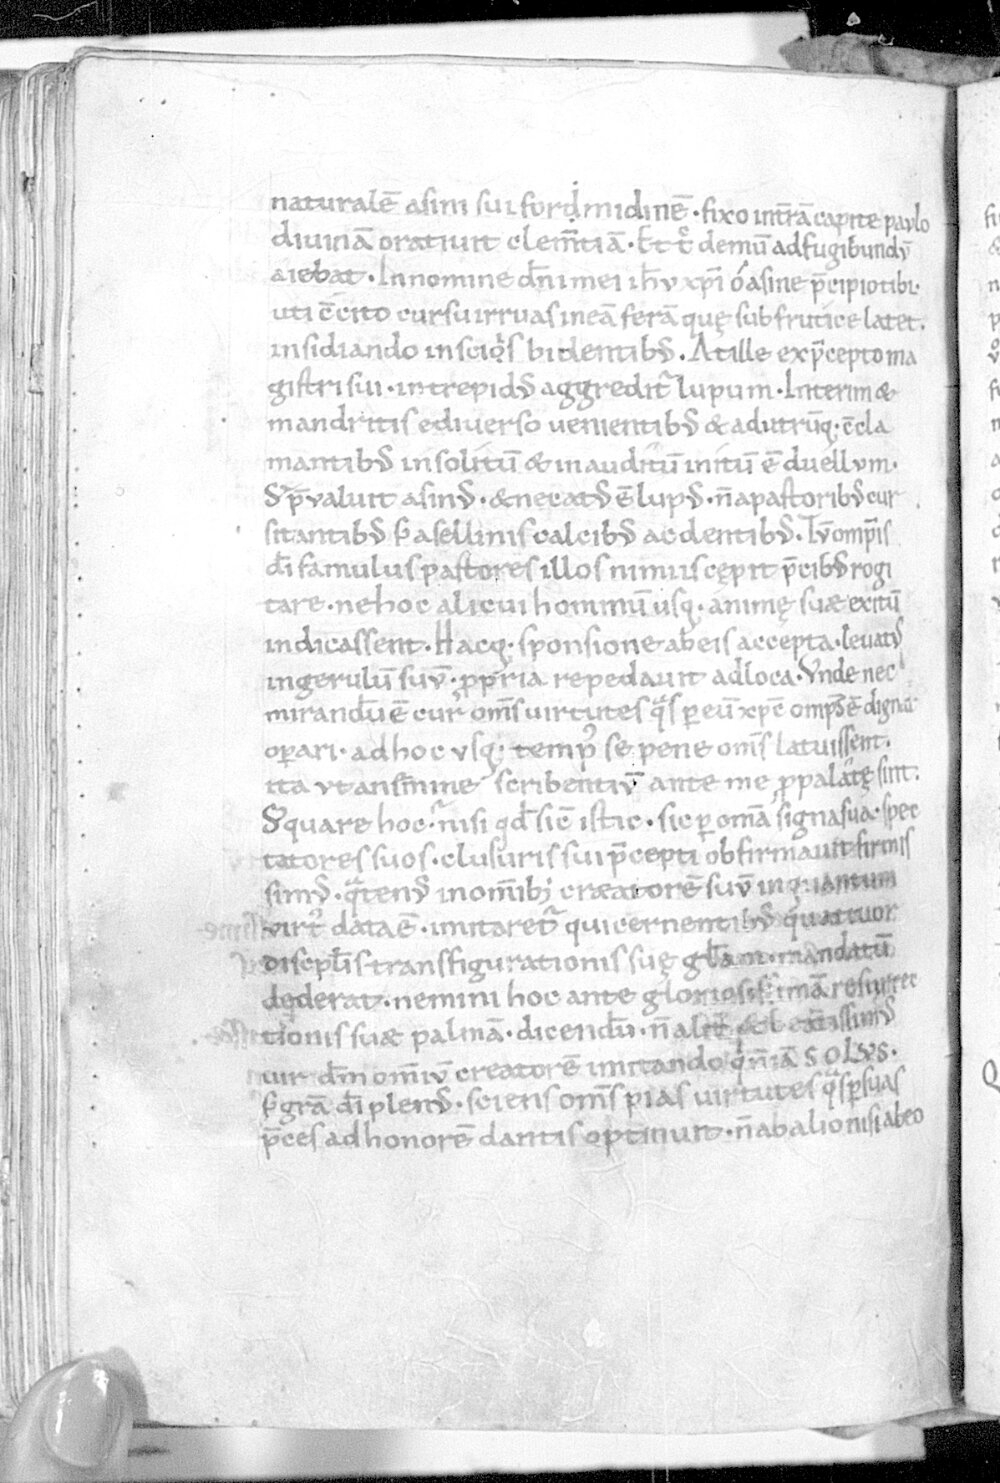 naturalē asini sui forḋmidinē · fixo intrā capite paulo
diuinā oratiuit clem̄tiā · demū ad fugibundū
aiebat · In nomine dn̄i mei ihū xp̄i ó asine p̄cipio tibi ·
uti ēcito cursu irruas in eā ferā quę sub frutice latet ·
insidiando insciis bidentibꝰ · At ille ex p̄cepto ma
gistri sui · intrepidꝰ aggredit̄ lupum · Interim &
mandritis e diuerso uenientibꝰ & ad utrūq· ēcla
mantibꝰ insolitū & inauditū initū ē duellum ·
S p̄ualuit asinꝰ · & necatꝰ ē lupꝰ · n̄ a pastoribꝰ cur
sitantibꝰ asellinis calcibꝰ ac dentibꝰ · Tū omp̄is
dī famulus pastores illos nimiis cępit p̄cibꝰ rogi
tare · ne hoc alicui hominū usq· animę suæ exitū
indicassent · Hacq· sponsione ab eis accepta · leuatꝰ
in gerulū suū · pp̄ria repedauit ad loca · Vnde nec
mirandū ē cur om̄s uirtutes q̄s p eū xp̄c omp̄s ē dignat̄
opari · ad hoc usq· tempꝰ se pene om̄s latuissent ·
ita ut a nemine scribentiū ante me ppalatę sint ·
S quare hoc · nisi qd̄ sic̄ istic · sic p om̄ā signa sua · spec
tatores suos · clusuris sui p̄cepti obfirmauit firmis
simꝰ · q̄tenꝰ in om̄ibꝫ creatorē suū in quantum
uirt̄ data ē · imitaret̄ qui cernentibꝰ quattuor
discip̄lis transfigurationis suę gl̄am mandatū
dederat · nemini hoc ante gloriosissimā resurrec
tionis suæ palmā · dicendū · n̄ alit̄ & beatissimꝰ
uir dm̄ om̄iū creatorē imitando qm̄iā SOLVS ·
grā dī plenꝰ · sciens om̄s pias uirtutes q̄s p suas
p̄ces ad honorē dantis optinuit · n̄ ab alio nisi ab eo